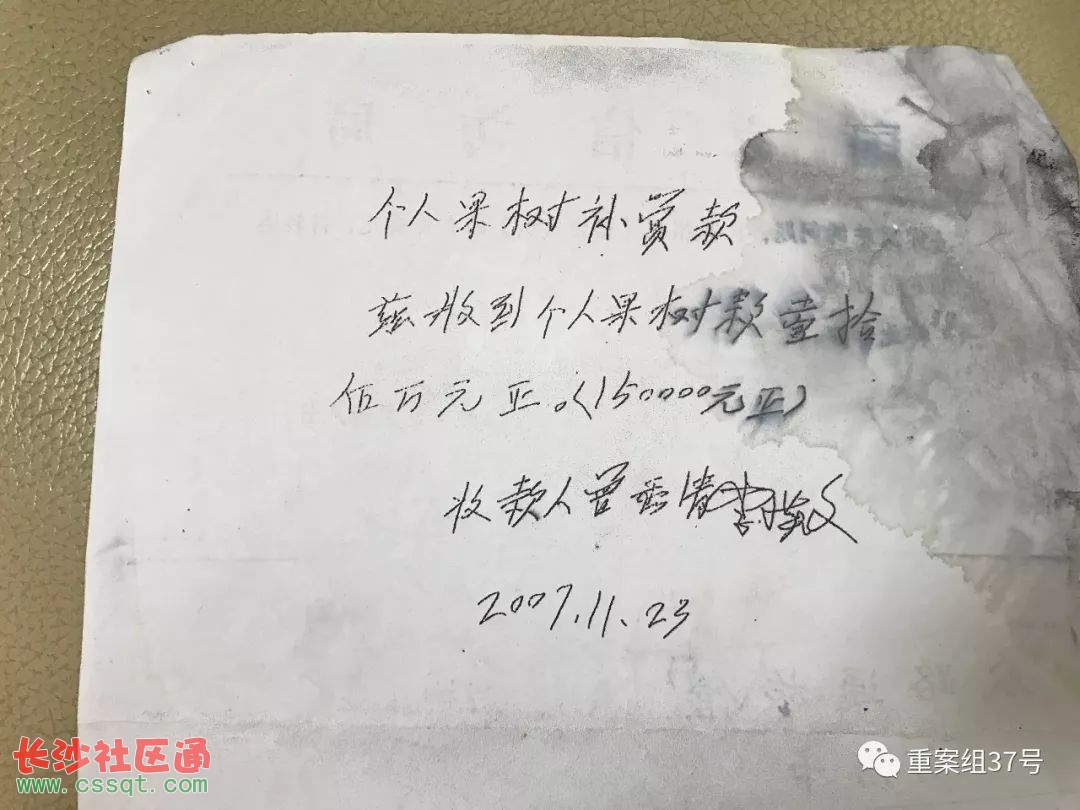 个人果树补赏款
兹收到个人果树款壹拾
伍万元正。(150000元正)
收款人曾
2007.11.23
长沙社区通
www.cssqt.com
重案组37号